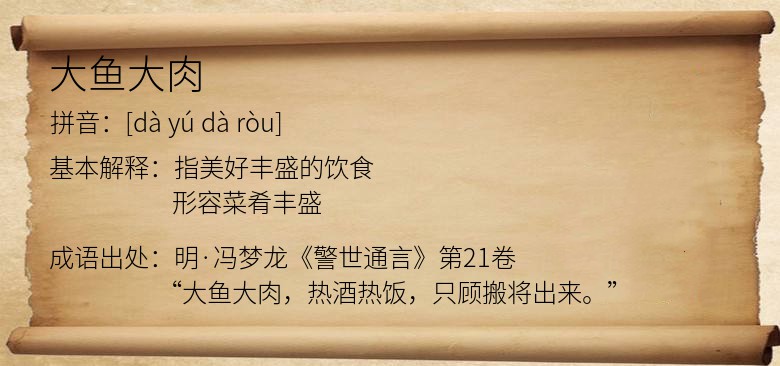 大鱼大肉
拼音：[dà yú dà ròu]
基本解释：指美好丰盛的饮食
形容菜肴丰盛
成语出处：明·冯梦龙《警世通言》第21卷
“大鱼大肉，热酒热饭，只顾搬将出来。”